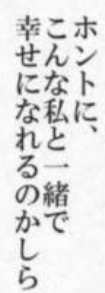 ホントに、
こんな私と一緒で
幸せになれるのかしら